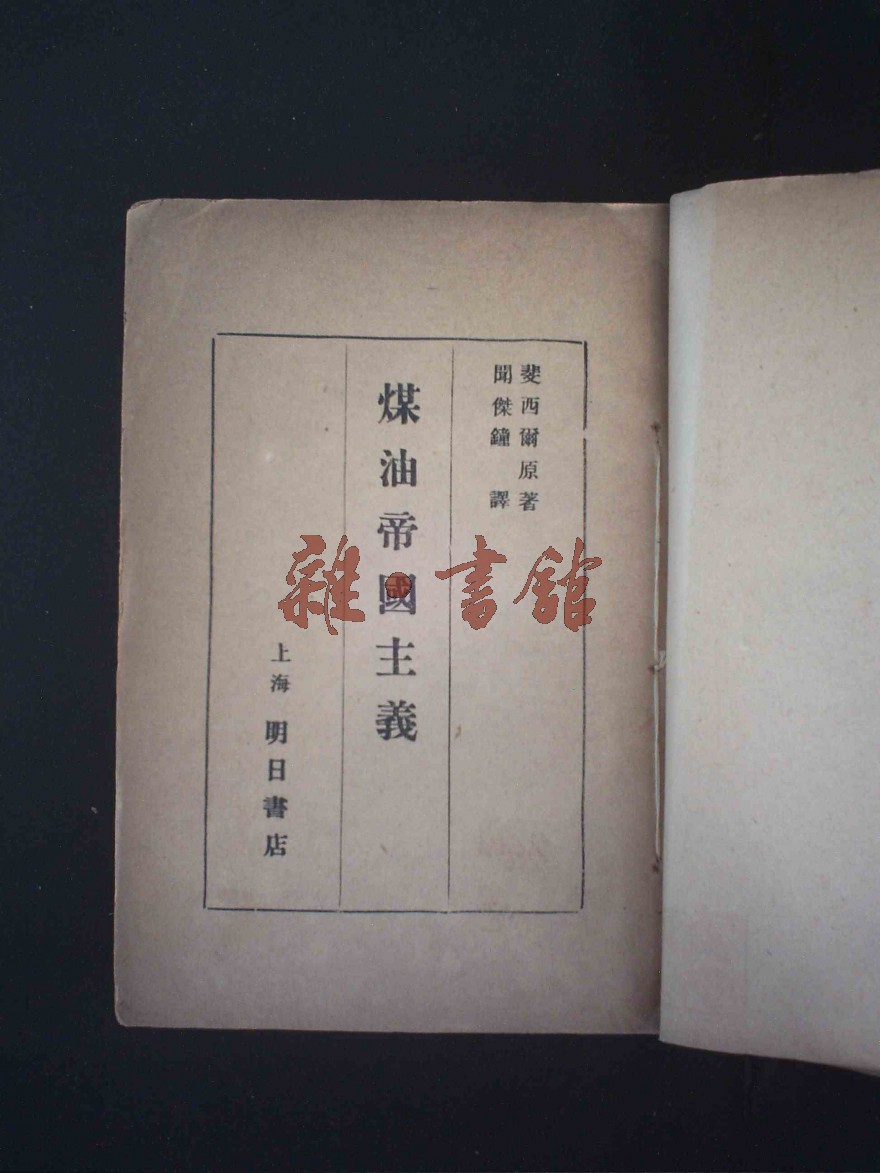 斐西爾原著
聞傑鐘譯
煤油帝國主義
上海 明日書店
雜·書館